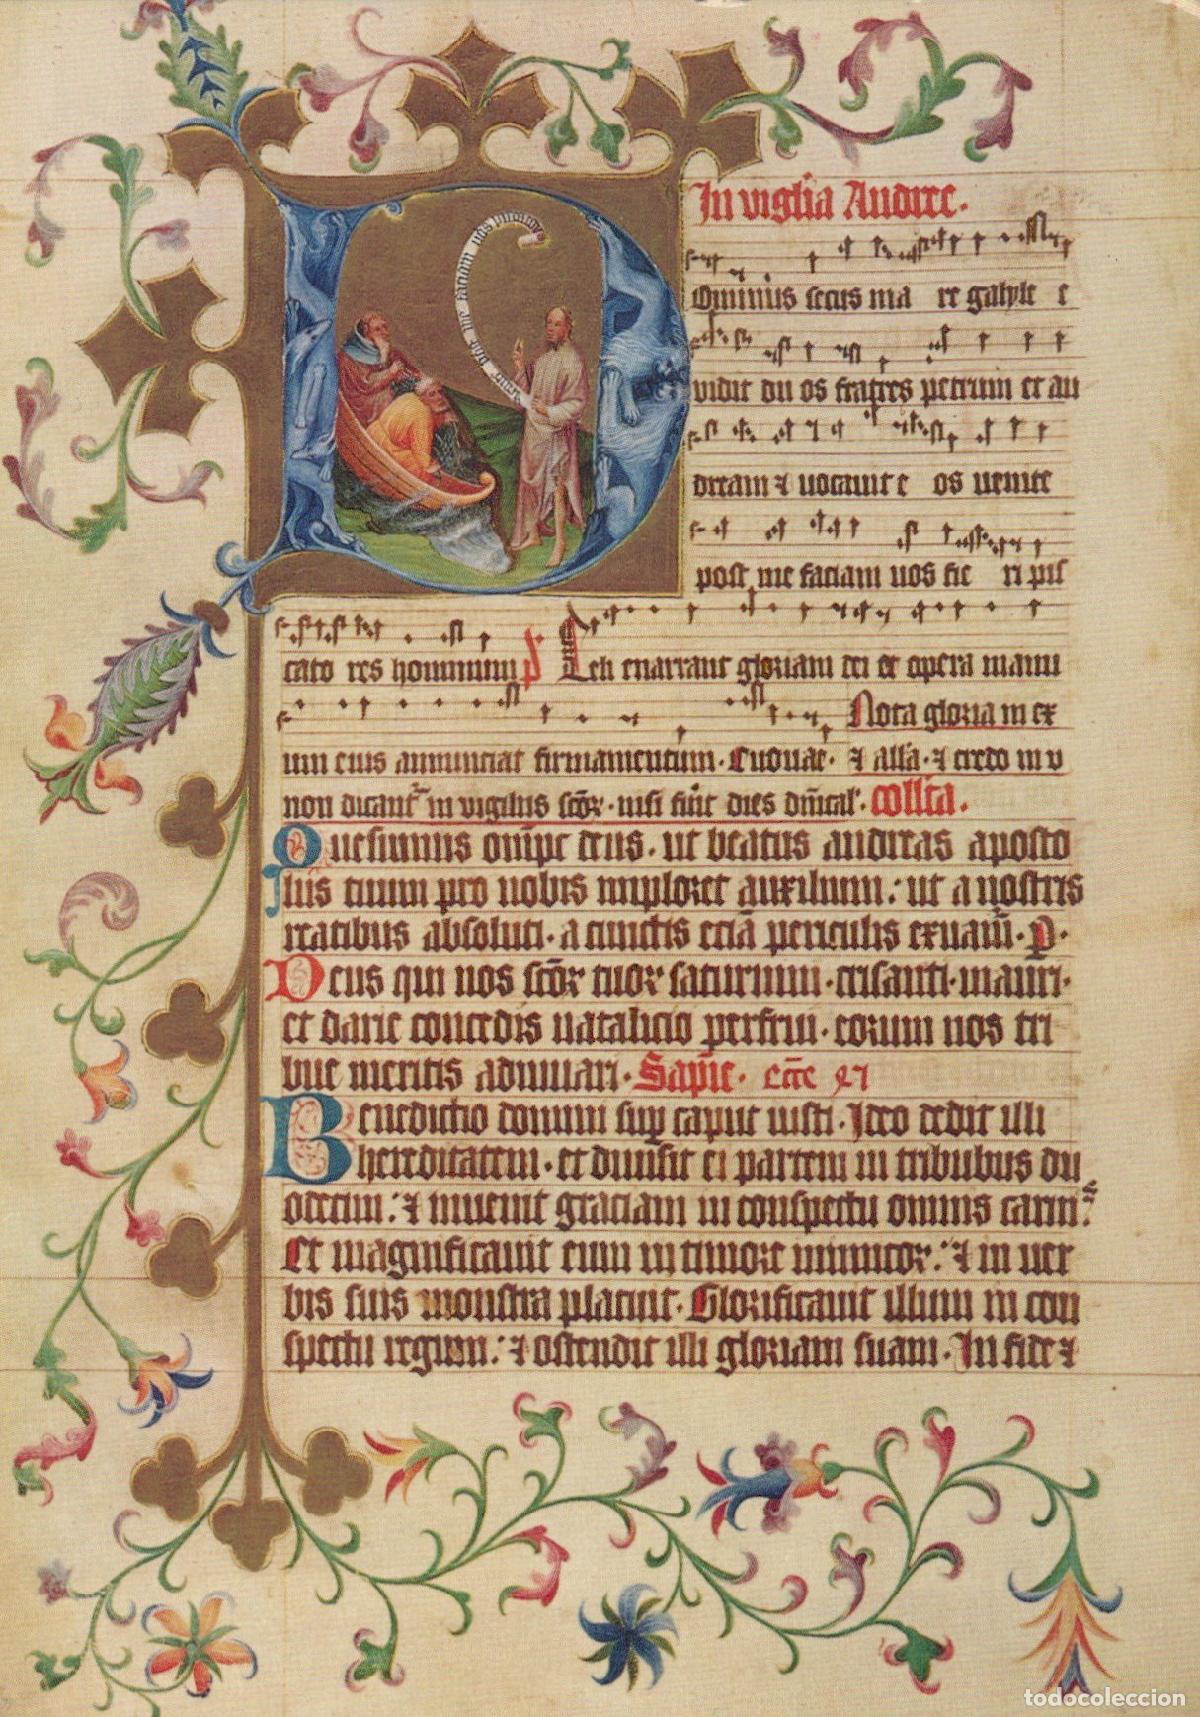 In viglia Andree.
Venite post me faciam vos piscatores
Ominus secus ma re galyle e
vidit du os fratres petrum et an
dream ⁊ uocauit e os uenite
post me faciam uos fie ri pis
cato res hominum p̄s Celi enarrant gloriam dei et opera manu
Nota gloria in ex
um eius annunciat firmamentum. Euouae. ⁊ alła. ⁊ credo in v
non dicant᷑ in vigiliis sc̄oꝝ. nisi fūit dies dn̄ical. collc̄a.
Quesumus om̄ps deus. ut beatus andreas aposto
lus tuum pro nobis imploret auxilium: ut a nostris
reatibus absoluti. a cunctis eciā periculis exuam̄. P.
Deus qui nos sc̄oꝝ tuoꝝ saturnini. crisanti. mauri.
et darie concedis natalicio perfrui. eorum nos tri
bue meritis adiuuari. Sapīe. ecc̄e
Benedictio domini suꝑ caput iusti. Ideo dedit illi
hereditatem. et diuisit ei partem in tribubus du
odecim: ⁊ inuenit graciam in conspectu omnis carnis:
Et magnificauit eum in timore inimicoꝝ: ⁊ in uer
bis suis monstra placuit. Glorificauit illum in con
spectu regum: ⁊ ostendit illi gloriam suam. In fide ⁊
todocoleccion